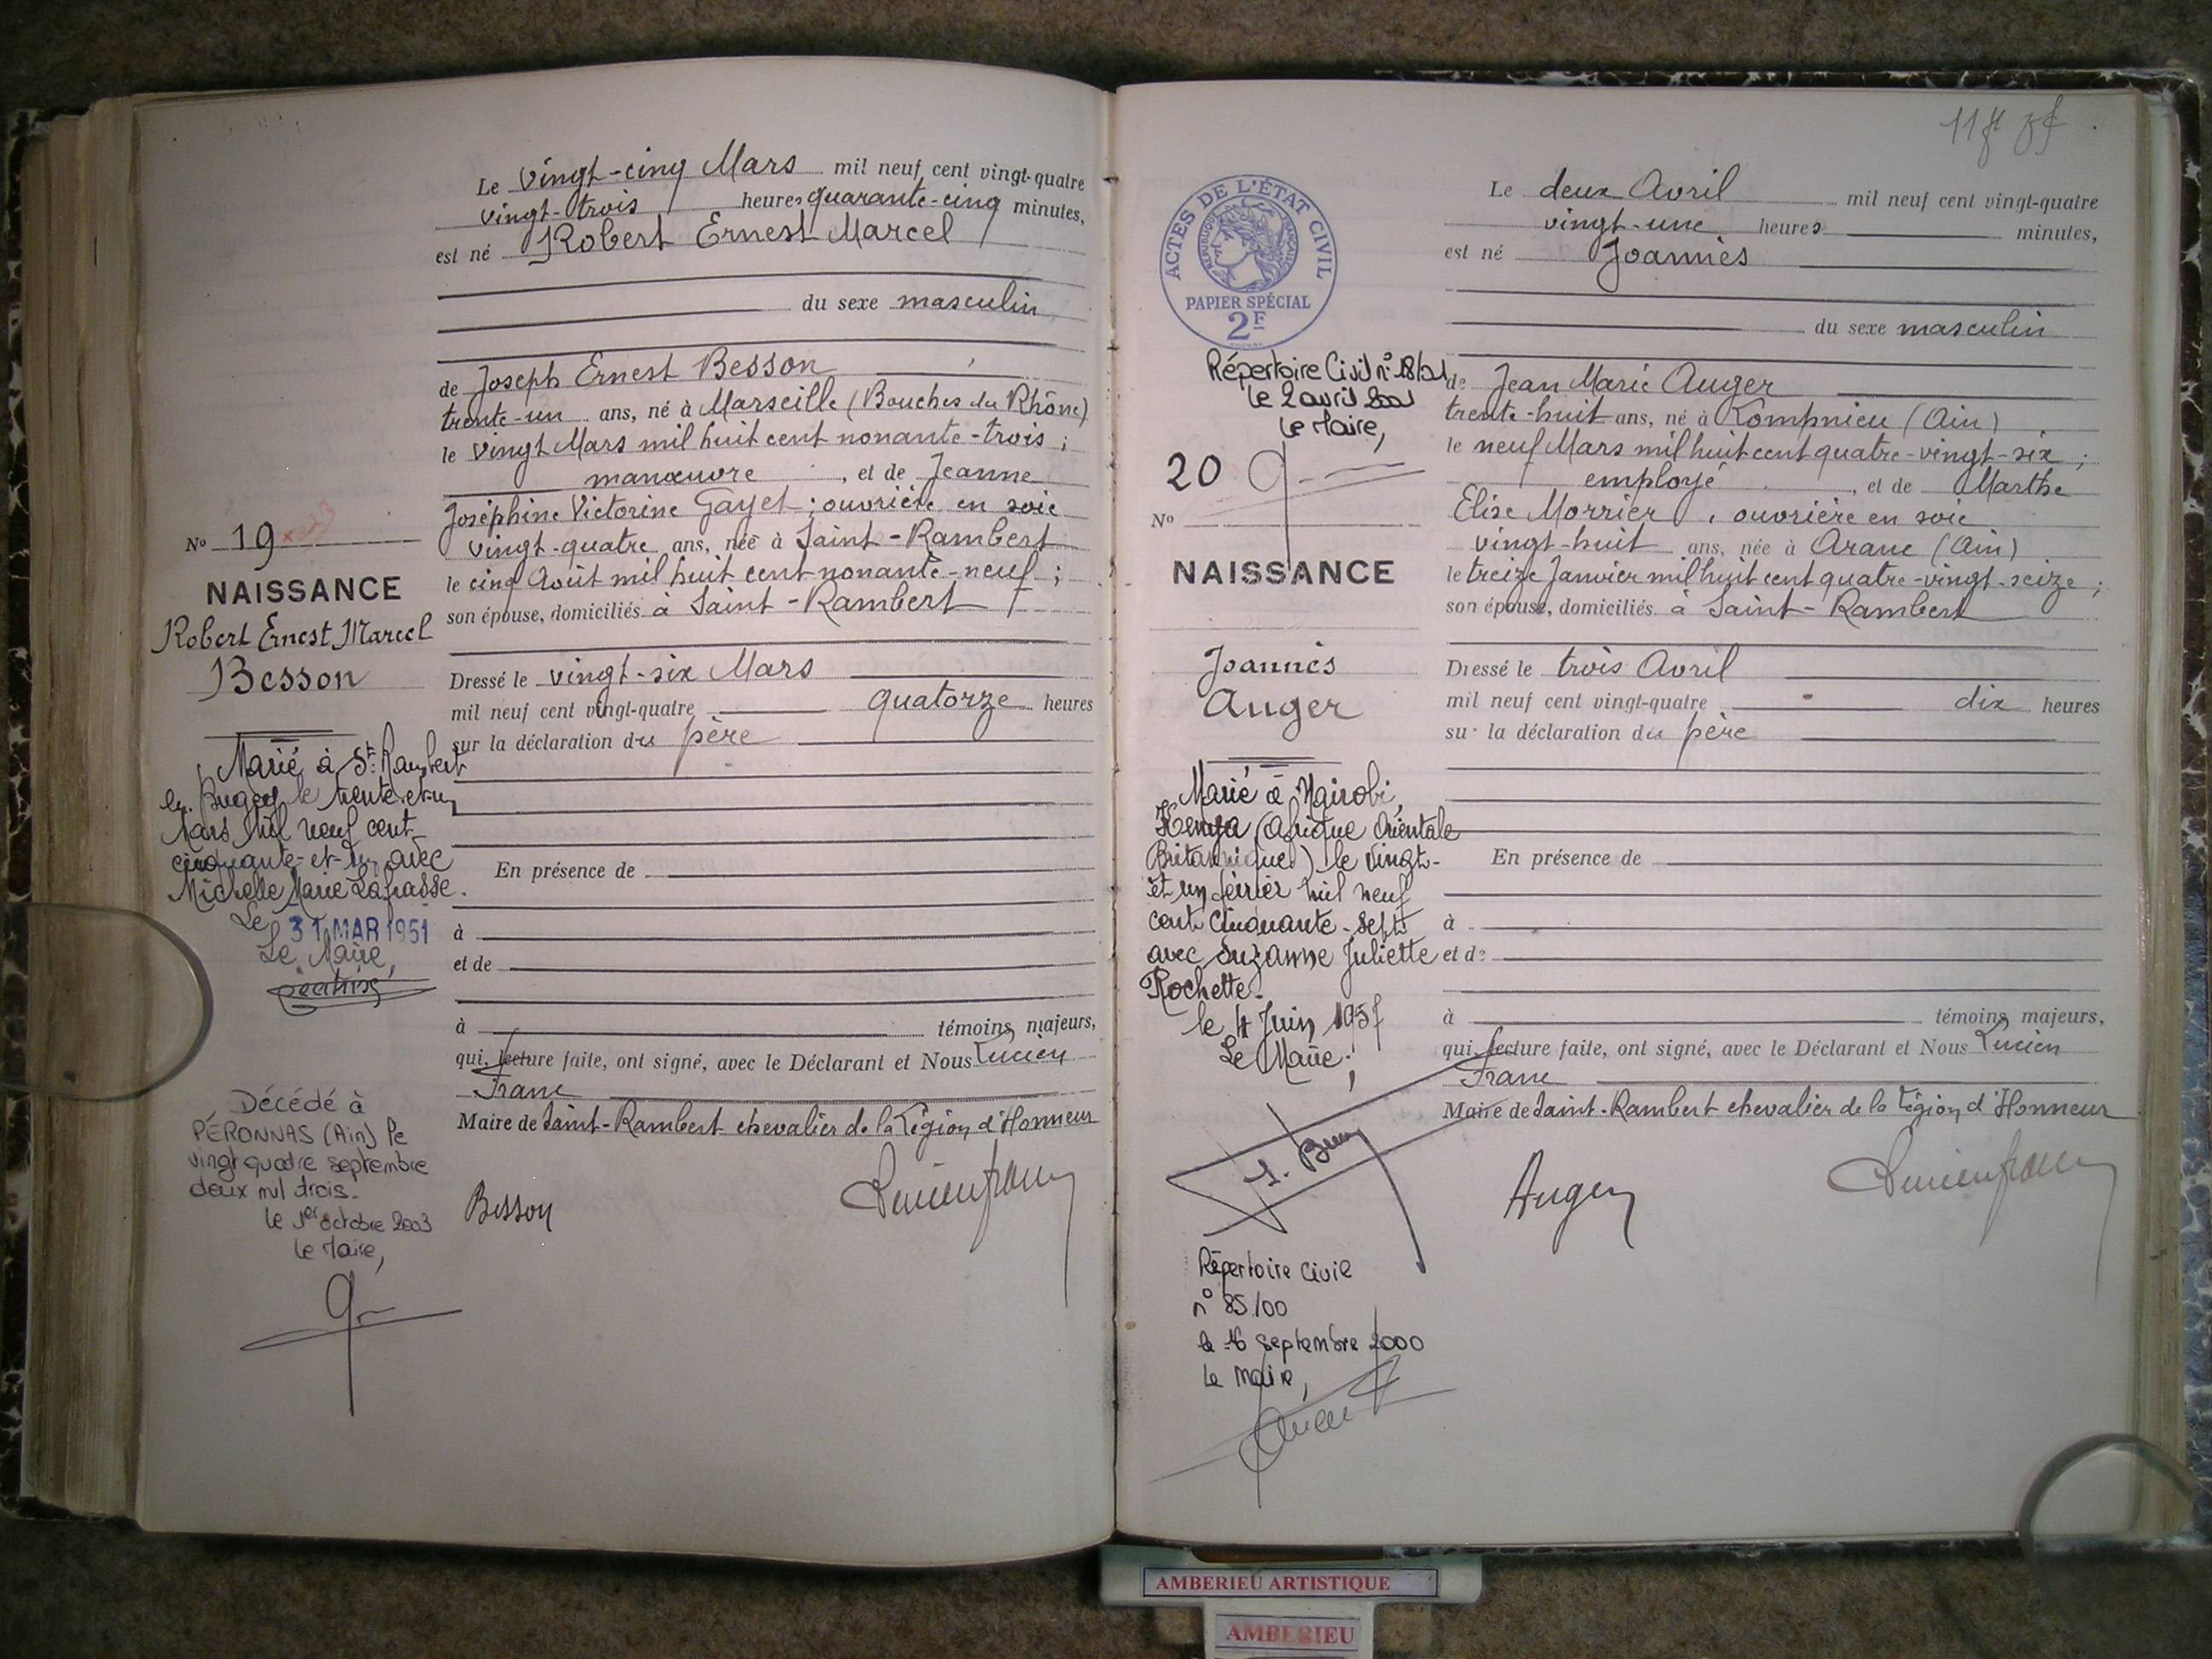 Le vingt-cinq Mars mil neuf cent vingt-quatre
vingt-trois heures quarante-cinq minutes,
est né Robert Ernest Marcel
du sexe masculin
de Joseph Ernest Besson
trente-un ans, né à Marseille (Bouches du Rhône)
le vingt Mars mil huit cent nonante-trois ;
manœuvre, et de Jeanne
Joséphine Victorine Gayet ; ouvrière en soie
vingt-quatre ans, née à Saint-Rambert
le cinq Août mil huit cent nonante-neuf ;
son épouse, domiciliés à Saint-Rambert
Dressé le vingt-six Mars
mil neuf cent vingt-quatre quatorze heures
sur la déclaration du père
En présence de
à
et de
à témoins majeurs,
qui, lecture faite, ont signé, avec le Déclarant et Nous Lucien
Franc
Maire de Saint-Rambert chevalier de la Légion d'Honneur
Besson
Lucien Franc
No 19
NAISSANCE
Robert Ernest Marcel
Besson
Marié à St. Rambert
en Bugey le trente-et-un
Mars mil neuf cent
cinquante-et-un avec
Michelle Marie Lafrasse.
Le 31 MAR 1951
Le Maire,
Décédé à
PÉRONNAS (Ain) le
vingt quatre septembre
deux mil trois.
le 1er octobre 2003
le Maire,
ACTES DE L'ÉTAT CIVIL
RÉPUBLIQUE FRANÇAISE
PAPIER SPÉCIAL
2F
Répertoire Civil n° 18/01
le 2 avril 2001
le Maire,
20
No
NAISSANCE
Joannès
Auger
Marié à Nairobi,
Kenya (Afrique Orientale
Britannique) le vingt-
et un février mil neuf
cent cinquante-sept
avec Suzanne Juliette
Rochette.
le 4 Juin 1957
Le Maire,
Répertoire Civil
n° 85/00
le 16 septembre 2000
Le Maire,
Le deux Avril mil neuf cent vingt-quatre
vingt-une heures minutes,
est né Joannès
du sexe masculin
de Jean Marie Auger
trente-huit ans, né à Lompnieu (Ain)
le neuf Mars mil huit cent quatre-vingt-six ;
employé, et de Marthe
Elise Morrier, ouvrière en soie
vingt-huit ans, née à Aranc (Ain)
le treize Janvier mil huit cent quatre-vingt-seize ;
son épouse, domiciliés à Saint-Rambert
Dressé le trois Avril
mil neuf cent vingt-quatre dix heures
sur la déclaration du père
En présence de
à
et de
à témoins majeurs,
qui, lecture faite, ont signé, avec le Déclarant et Nous Lucien
Franc
Maire de Saint-Rambert chevalier de la Légion d'Honneur
Auger
Lucien Franc
AMBERIEU ARTISTIQUE
AMBERIEU